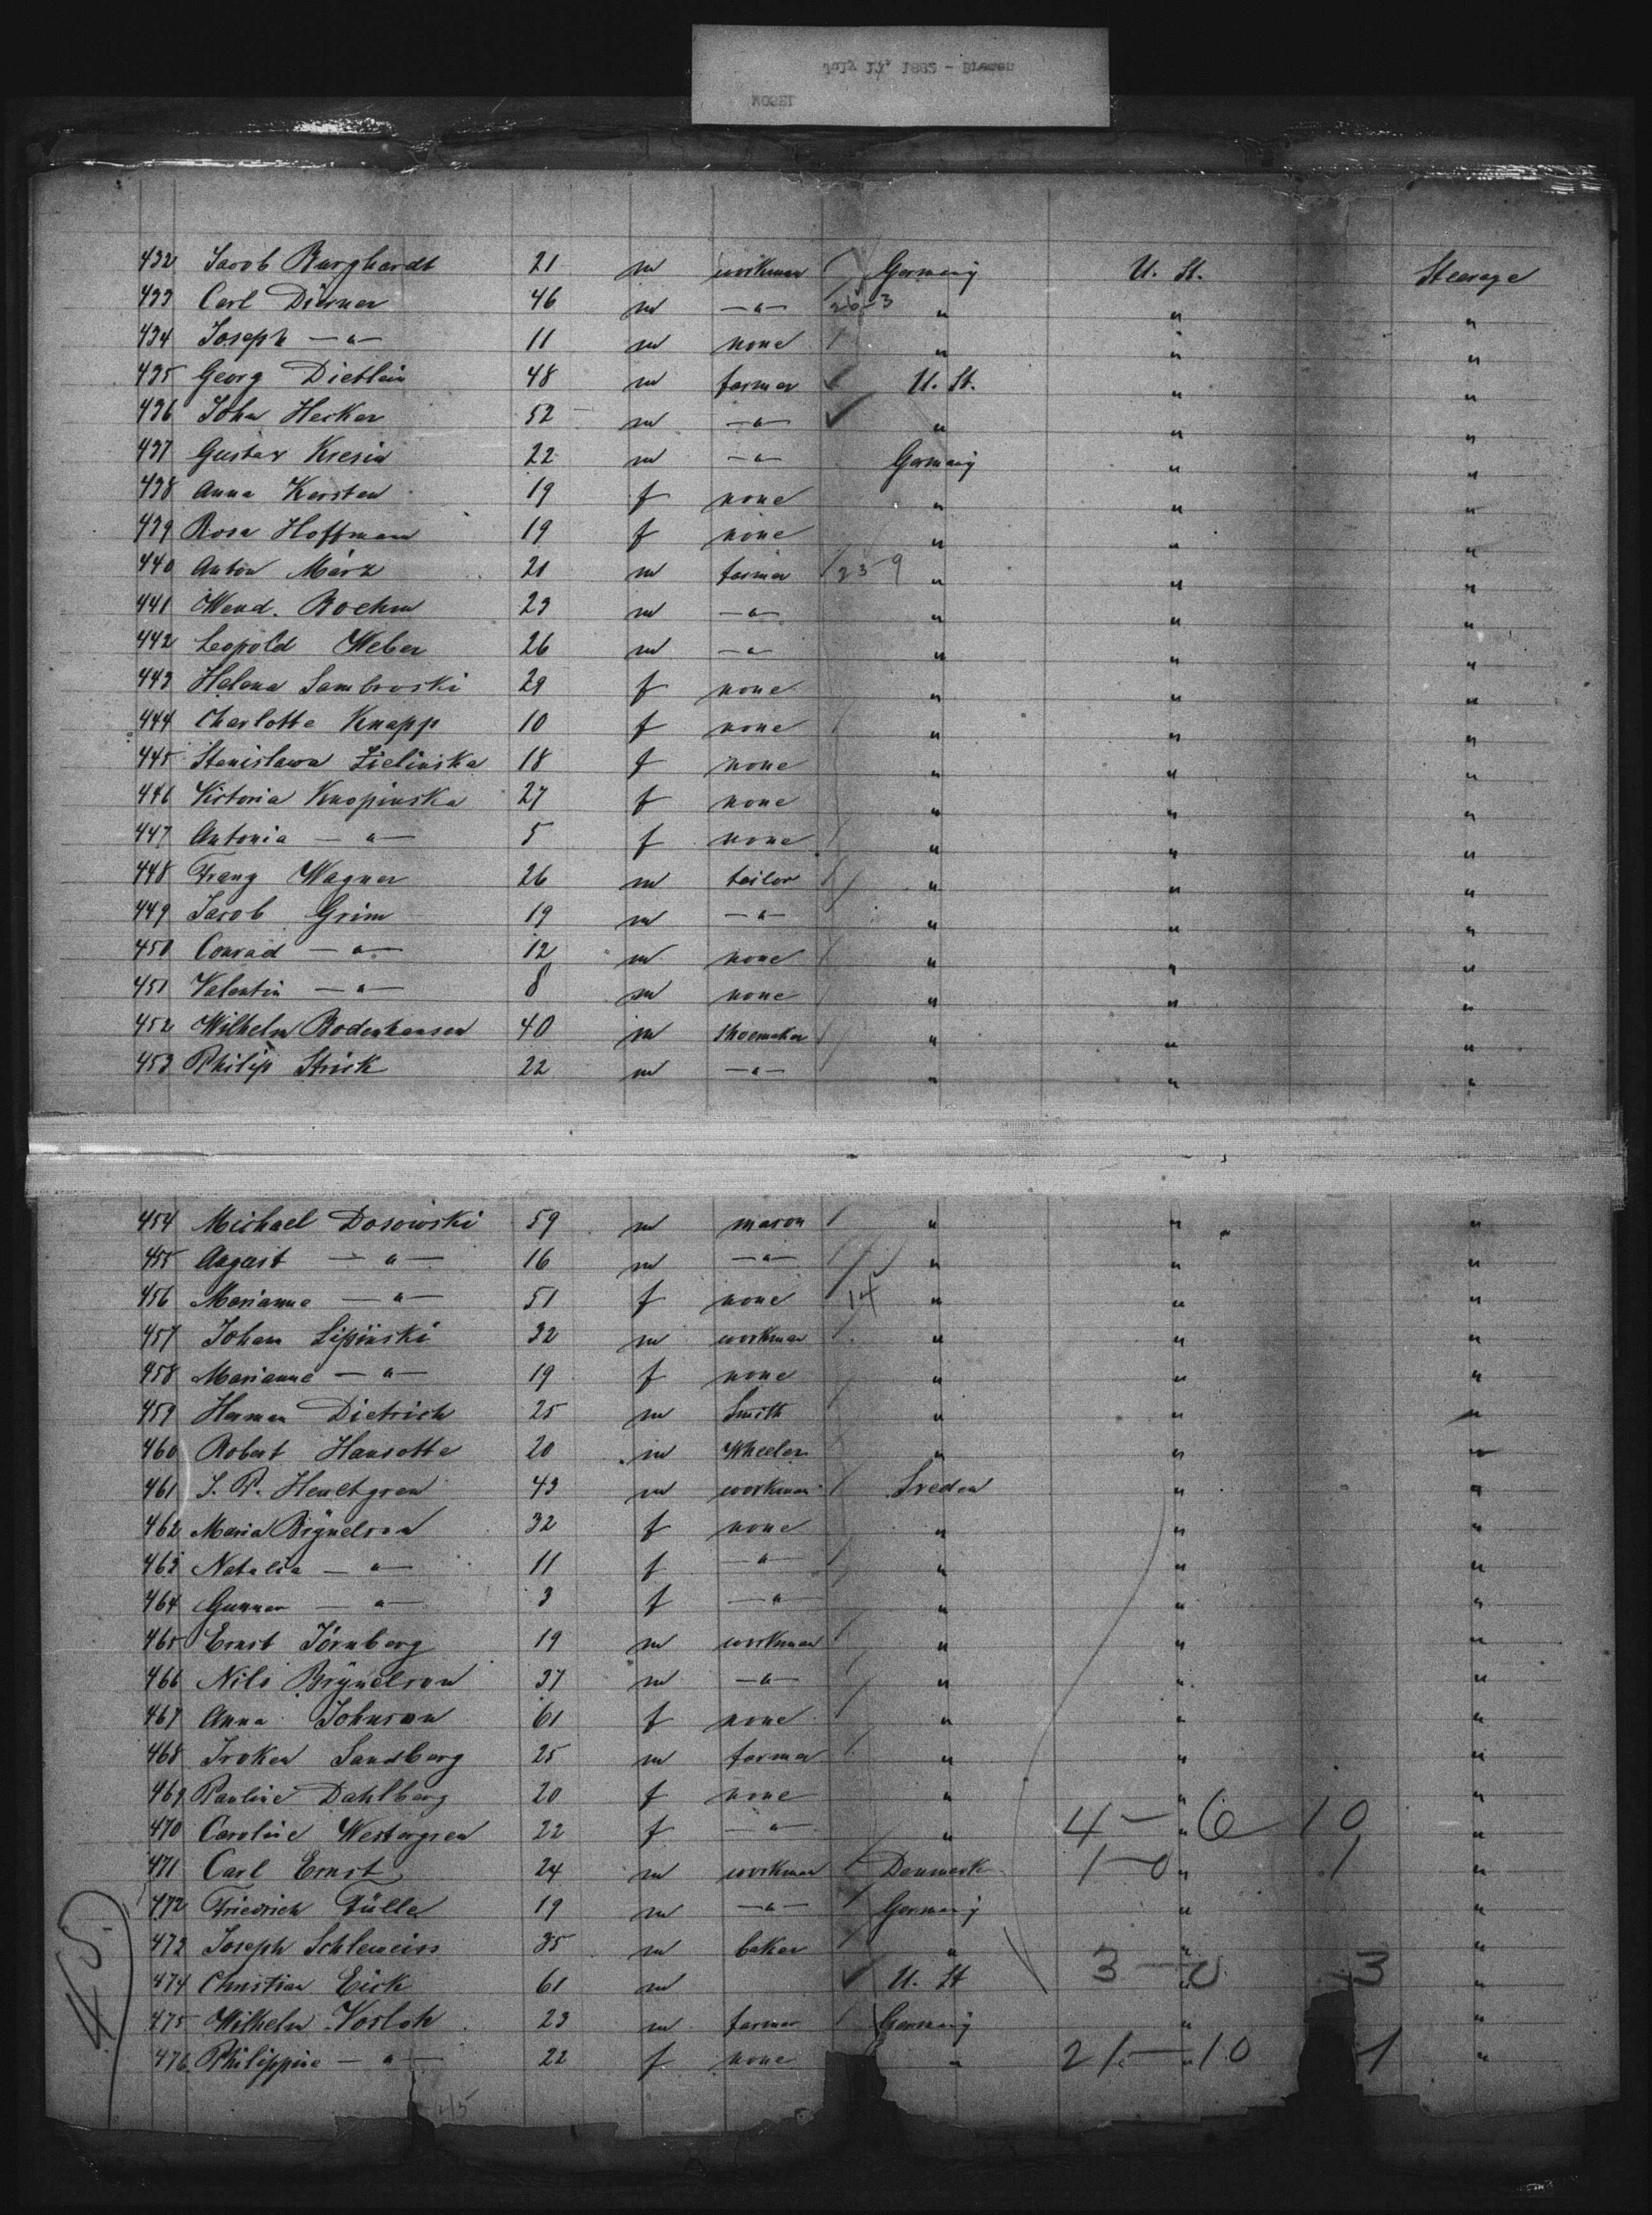 July 11, 1882 - Bremen
MOSEL
432 Jacob Burghardt 21 m workman Germany U. St. Steerage
433 Carl Diemer 46 m —"— 20-3 " " "
434 Joseph —"— 11 m none " " "
435 Georg Dieblein 48 m farmer U. St. " "
436 John Hecker 52 m —"— " " "
437 Gustav Kresin 22 m —"— Germany " "
438 Anna Kersten 19 f none " " "
439 Rosa Hoffmann 19 f none " " "
440 Anton März 21 m farmer 23 9 " " "
441 Wend. Boehm 23 m —"— " " "
442 Leopold Weber 26 m —"— " " "
443 Helena Sambroski 29 f none " " "
444 Charlotte Knapp 10 f none " " "
445 Stanislawa Zielinska 18 f none " " "
446 Victoria Knopinska 27 f none " " "
447 Antonia —"— 5 f none " " "
448 Franz Wagner 26 m tailor " " "
449 Jacob Grim 19 m —"— " " "
450 Conrad —"— 12 m none " " "
451 Valentin —"— 8 m none " " "
452 Wilhelm Bodenhausen 40 m shoemaker " " "
453 Philip Strick 22 m —"— " " "
454 Michael Dosowski 59 m mason " " "
455 August —"— 16 m —"— " " "
456 Marianna —"— 51 f none 14 " " "
457 Johann Lipinski 32 m workman " " "
458 Marianna —"— 19 f none " " "
459 Herman Dietrich 25 m Smith " " "
460 Robert Hansotte 20 m Wheeler " " "
461 J. P. Hencetgren 43 m workman Sveden " "
462 Maria Brynelson 32 f none " " "
463 Natalia —"— 11 f —"— " " "
464 Gunnar —"— 3 f —"— " " "
465 Ernst Törnberg 19 m workman " " "
466 Nils Brynelson 37 m —"— " " "
467 Anna Johnson 61 f none " " "
468 Sandberg 25 m farmer " " "
469 Pauline Dahlberg 20 f none " " "
470 Caroline Westergren 22 f —"— " " 4 - 6 10 "
471 Carl Ernst 24 m workman Denmark " 1 - 0 1 "
472 Friedrich Fülle 19 m —"— Germany " "
473 Joseph Schleweiss 35 m baker " " "
474 Christian Eick 61 m U. St " 3 - 0 3 "
475 Wilhelm Kosloh 23 m farmer Germany " "
476 Philippine —"— 22 f none " " 21 - 10 1 "
45
45